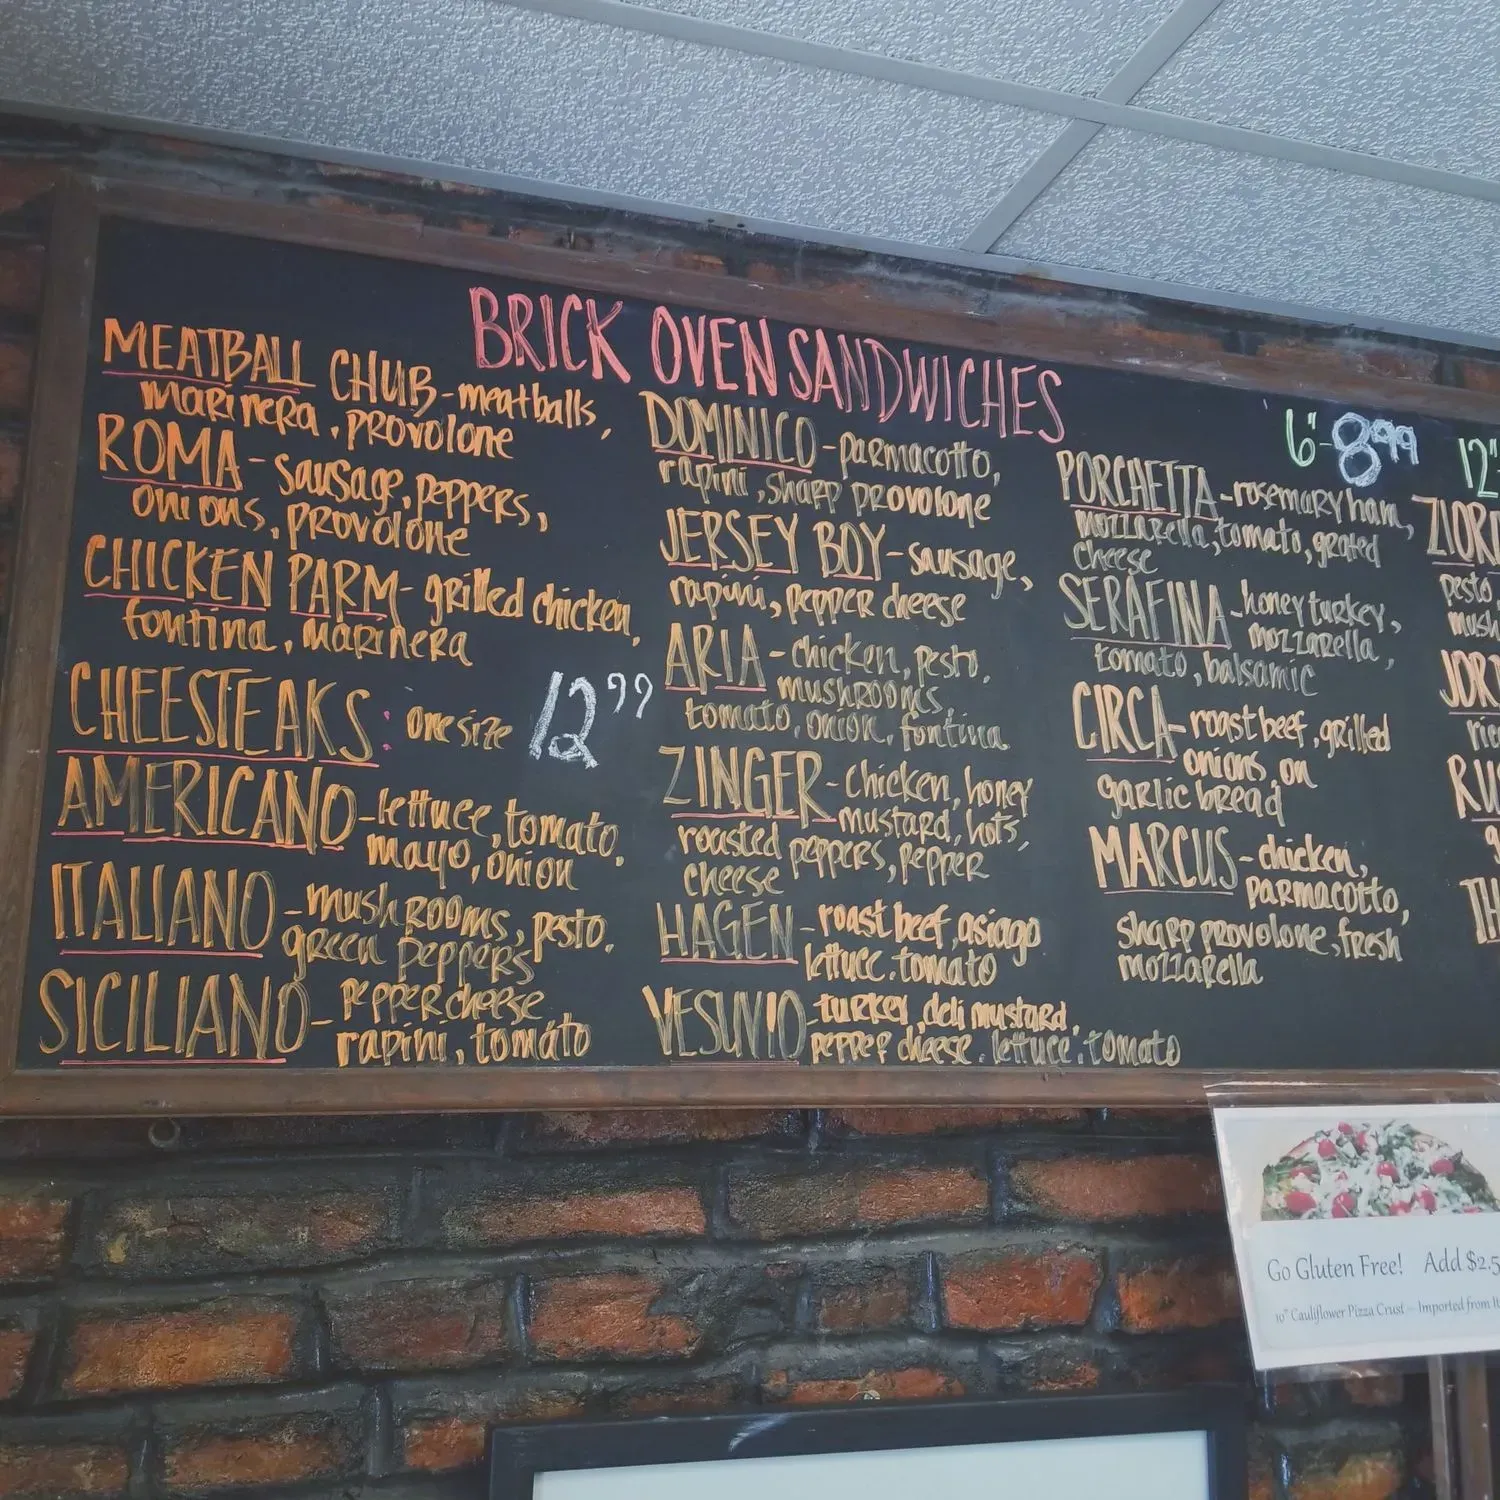 BRICK OVEN SANDWICHES
MEATBALL CHUB - meatballs,
marinera, provolone
ROMA - sausage, peppers,
onions, provolone
CHICKEN PARM - grilled chicken,
fontina, marinera
CHEESTEAKS: one size 12.99
AMERICANO - lettuce, tomato,
mayo, onion
ITALIANO - mushrooms, pesto,
green peppers
SICILIANO - pepper cheese
rapini, tomato
DOMINICO - parmacotto,
rapini, sharp provolone
JERSEY BOY - sausage,
rapini, pepper cheese
ARIA - chicken, pesto,
mushrooms,
tomato, onion, fontina
ZINGER - chicken, honey
mustard, hots,
roasted peppers, pepper
cheese
HAGEN - roast beef, asiago
lettuce, tomato
VESUVIO - turkey, deli mustard,
pepper cheese, lettuce, tomato
6" - 8.99
PORCHETTA - rosemary ham,
mozzarella, tomato, grated
cheese
SERAFINA - honey turkey,
mozzarella,
tomato, balsamic
CIRCA - roast beef, grilled
onions, on
garlic bread
MARCUS - chicken,
parmacotto,
sharp provolone, fresh
mozzarella
12"
pesto,
Go Gluten Free! Add $2.5
10" Cauliflower Pizza Crust - Imported from It